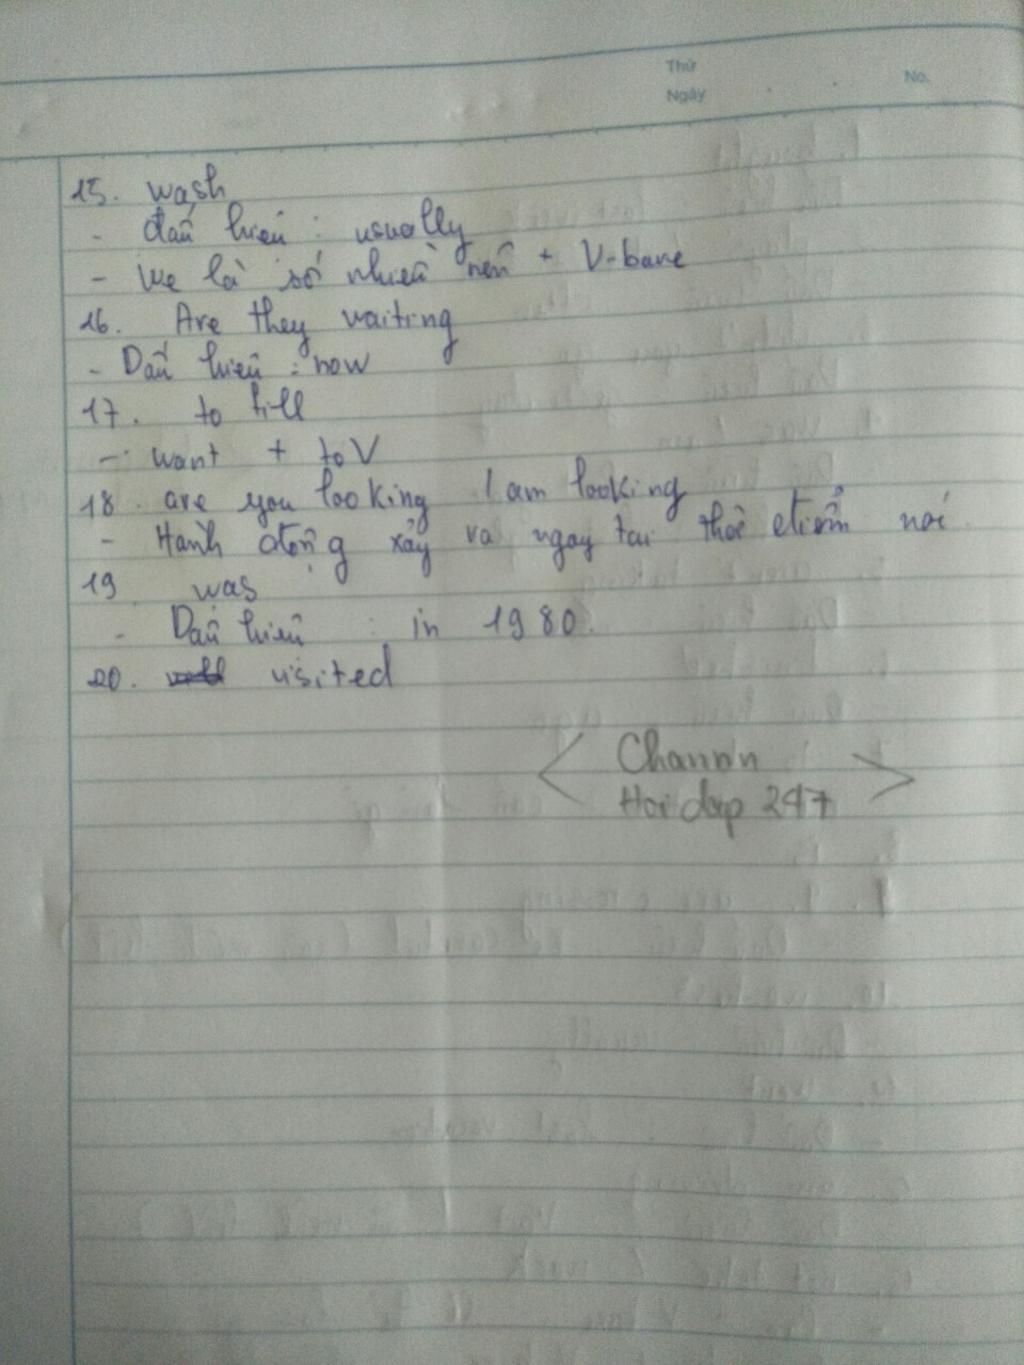 Thứ
Ngày
No.
15. wash
- dấu hiệu : usually
- We là số nhiều nên + V-bare
16. Are they waiting
- Dấu hiệu : now
17. to
- want + to V
18. are you looking I am looking
- Hành động xảy ra ngay tại thời điểm nói
19 was
- Dấu hiệu : in 1980.
20. visited
< Channn >
Hoidap 247